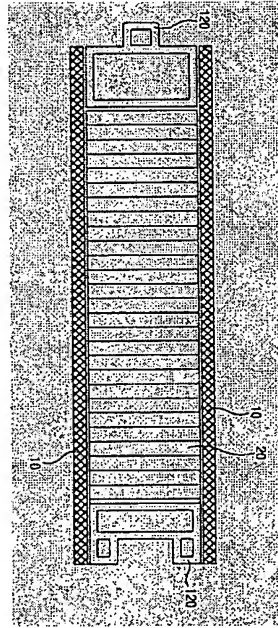 120
10
20
10
120